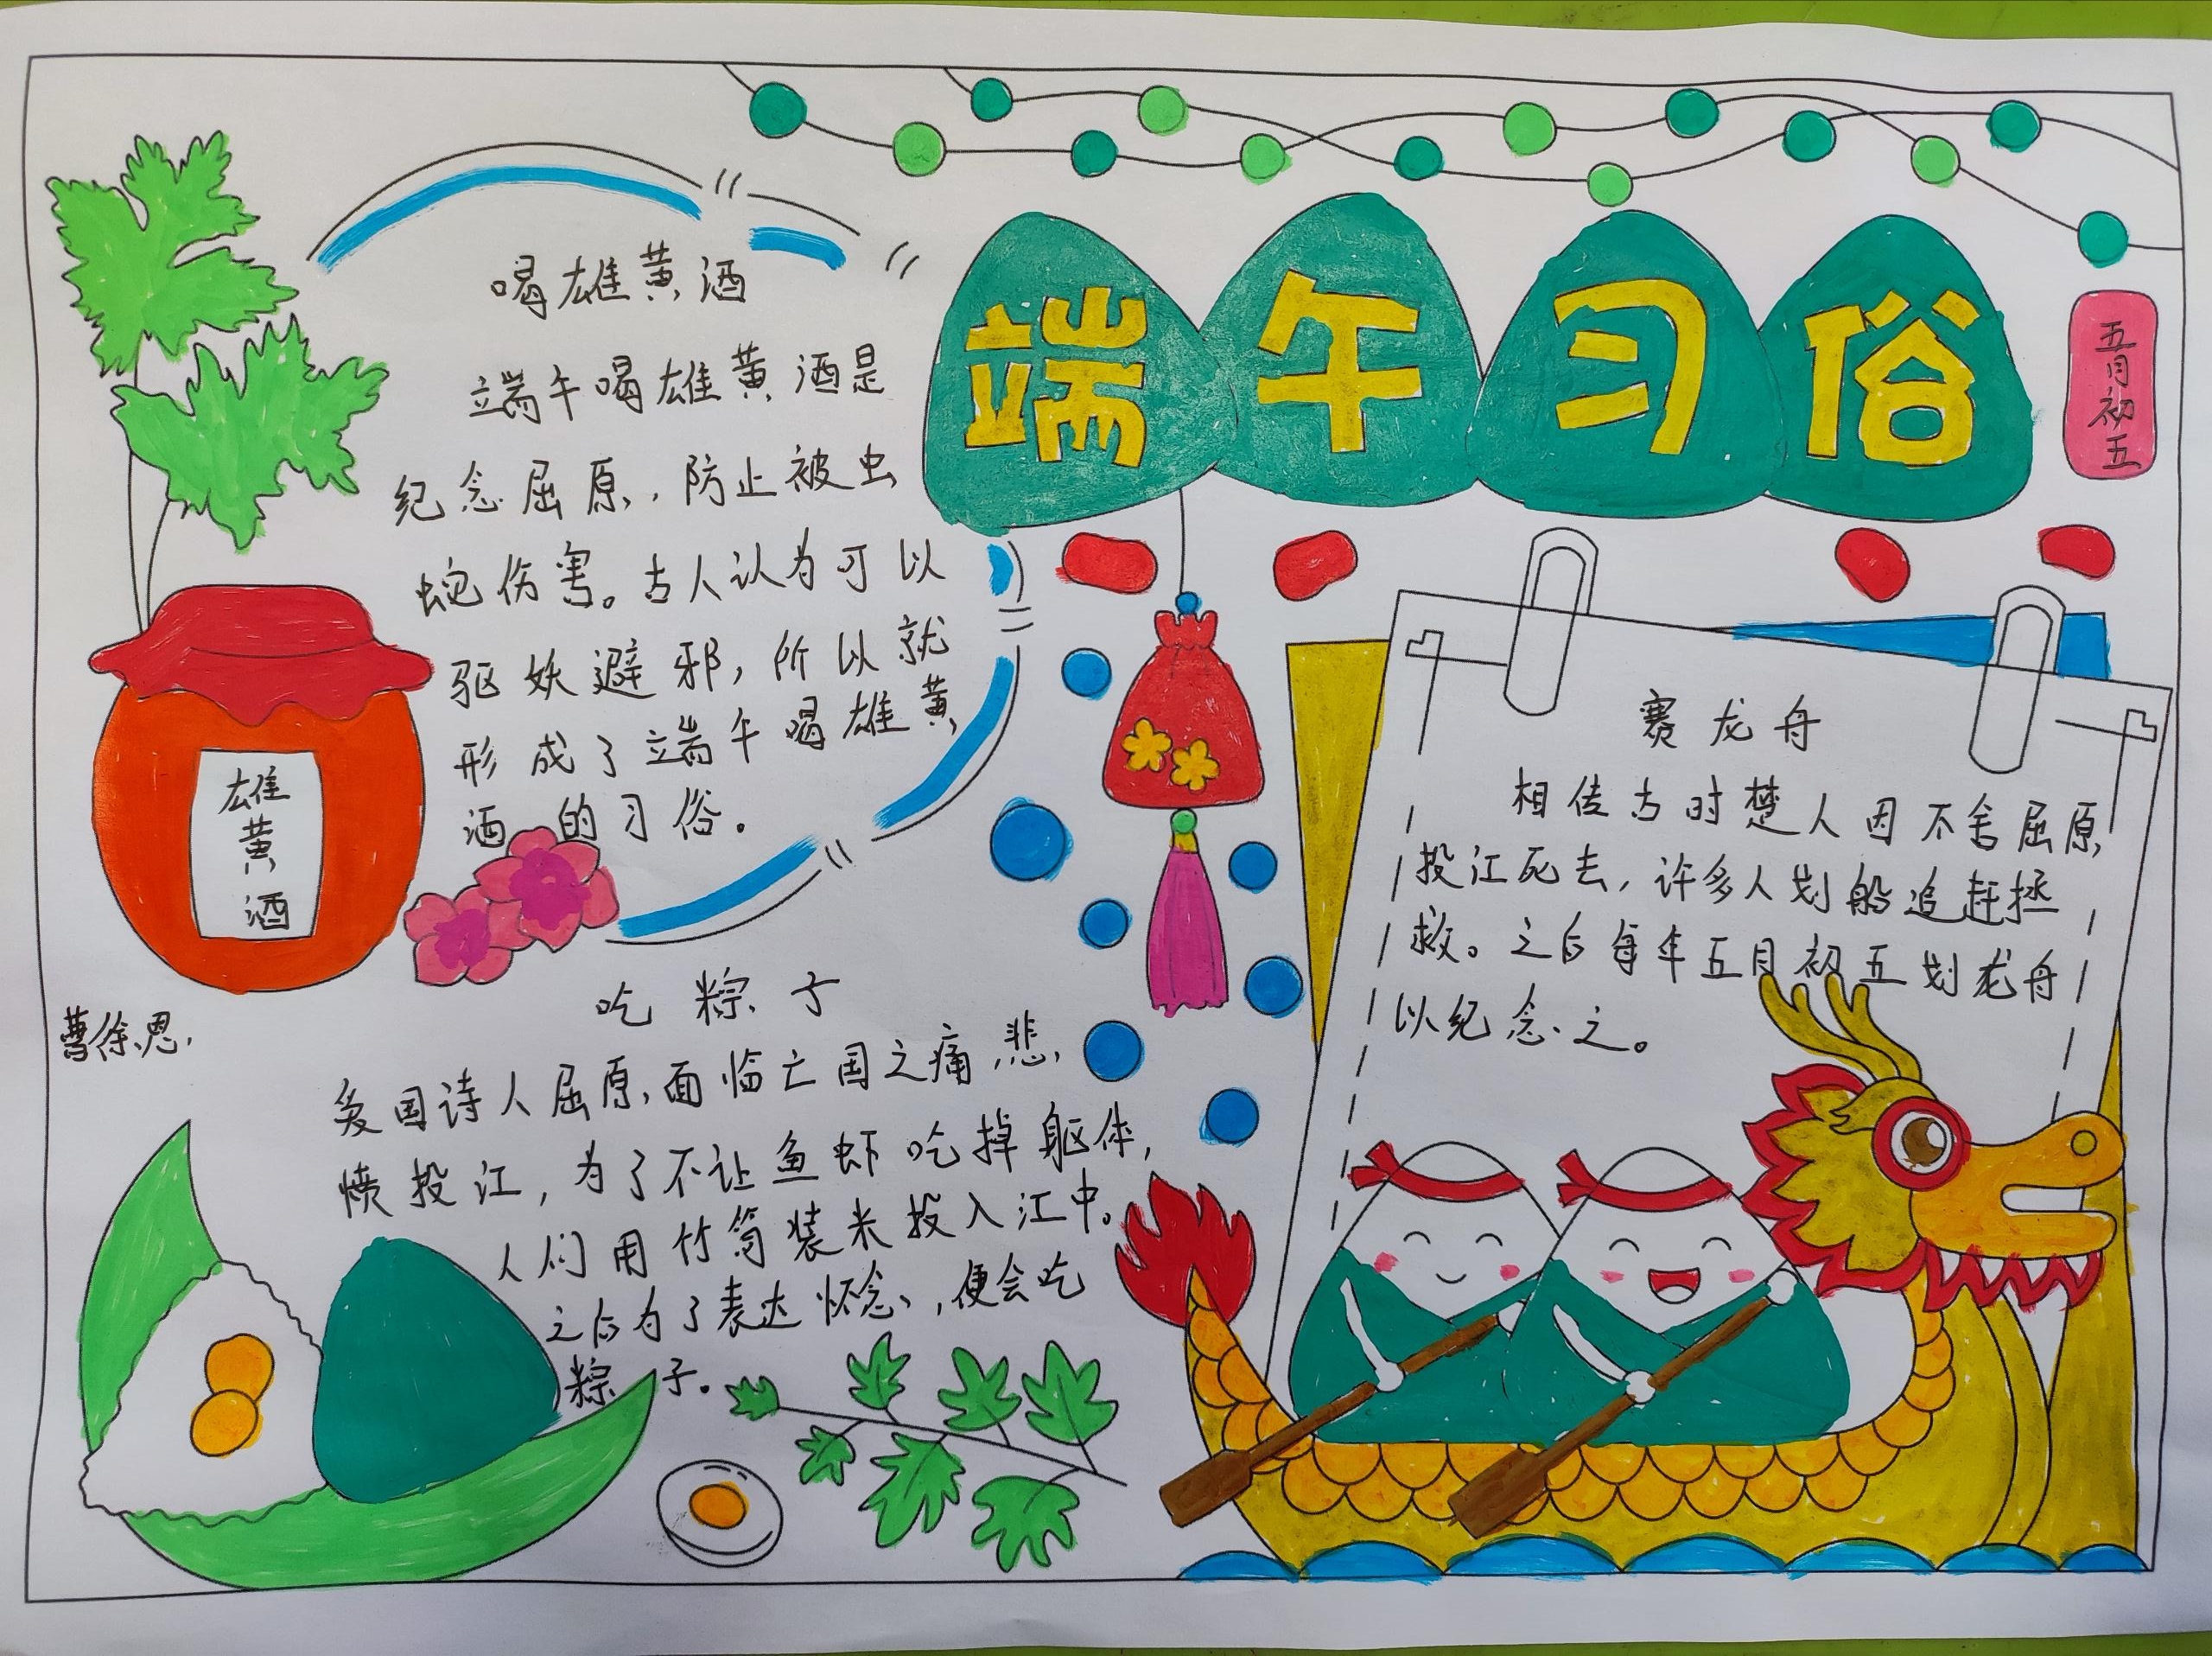 端午习俗
五月初五
喝雄黄酒
端午喝雄黄酒是
纪念屈原,防止被虫
蛇伤害。古人认为可以
驱妖避邪,所以就
形成了端午喝雄黄
酒的习俗。
雄黄酒
曹徐恩.
吃粽子
爱国诗人屈原,面临亡国之痛,悲
愤投江,为了不让鱼虾吃掉躯体,
人们用竹筒装米投入江中。
之后为了表达怀念,便会吃
粽子。
赛龙舟
相传古时楚人因不舍屈原
投江死去,许多人划船追赶拯
救。之后每年五月初五划龙舟
以纪念之。